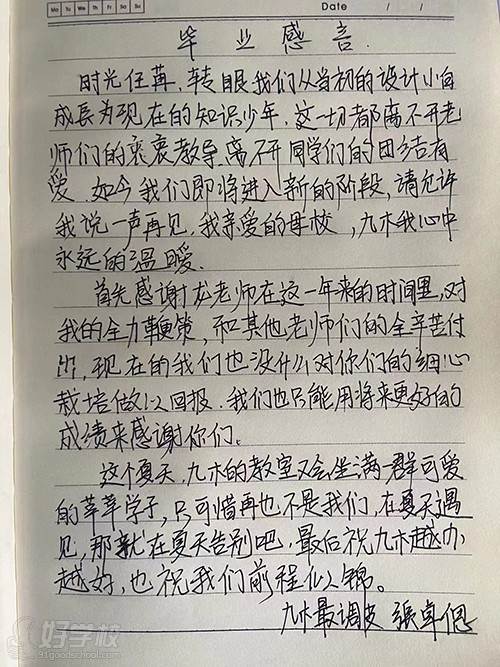 Mo Tu We Th Fr Sa Su
Date / /
毕业感言.
时光任苒,转眼我们从当初的设计小白
成長为现在的知识少年,这一切都离不开老
师们的衷衷教导,离不开同学们的团结有
爱.如今我们即将进入新的阶段,请允许
我说一声再见,我亲爱的母校,九木我心中
永远的温暖.
首先感谢龙老师在这一年来的时间里,对
我的全力鞭策,和其他老师们的全辛苦付
出,现在的我们也没什么对你们的细心
栽培做以回报.我们也只能用将来更好的
成绩来感谢你们。
这个夏天,九木的教室又会坐满一群可爱
的莘莘学子,只可惜再也不是我们,在夏天遇
见,那就在夏天告别吧,最后祝九木越办
越好,也祝我们前程似锦。
九木最调皮 張卓
好学校
91goodschool.com